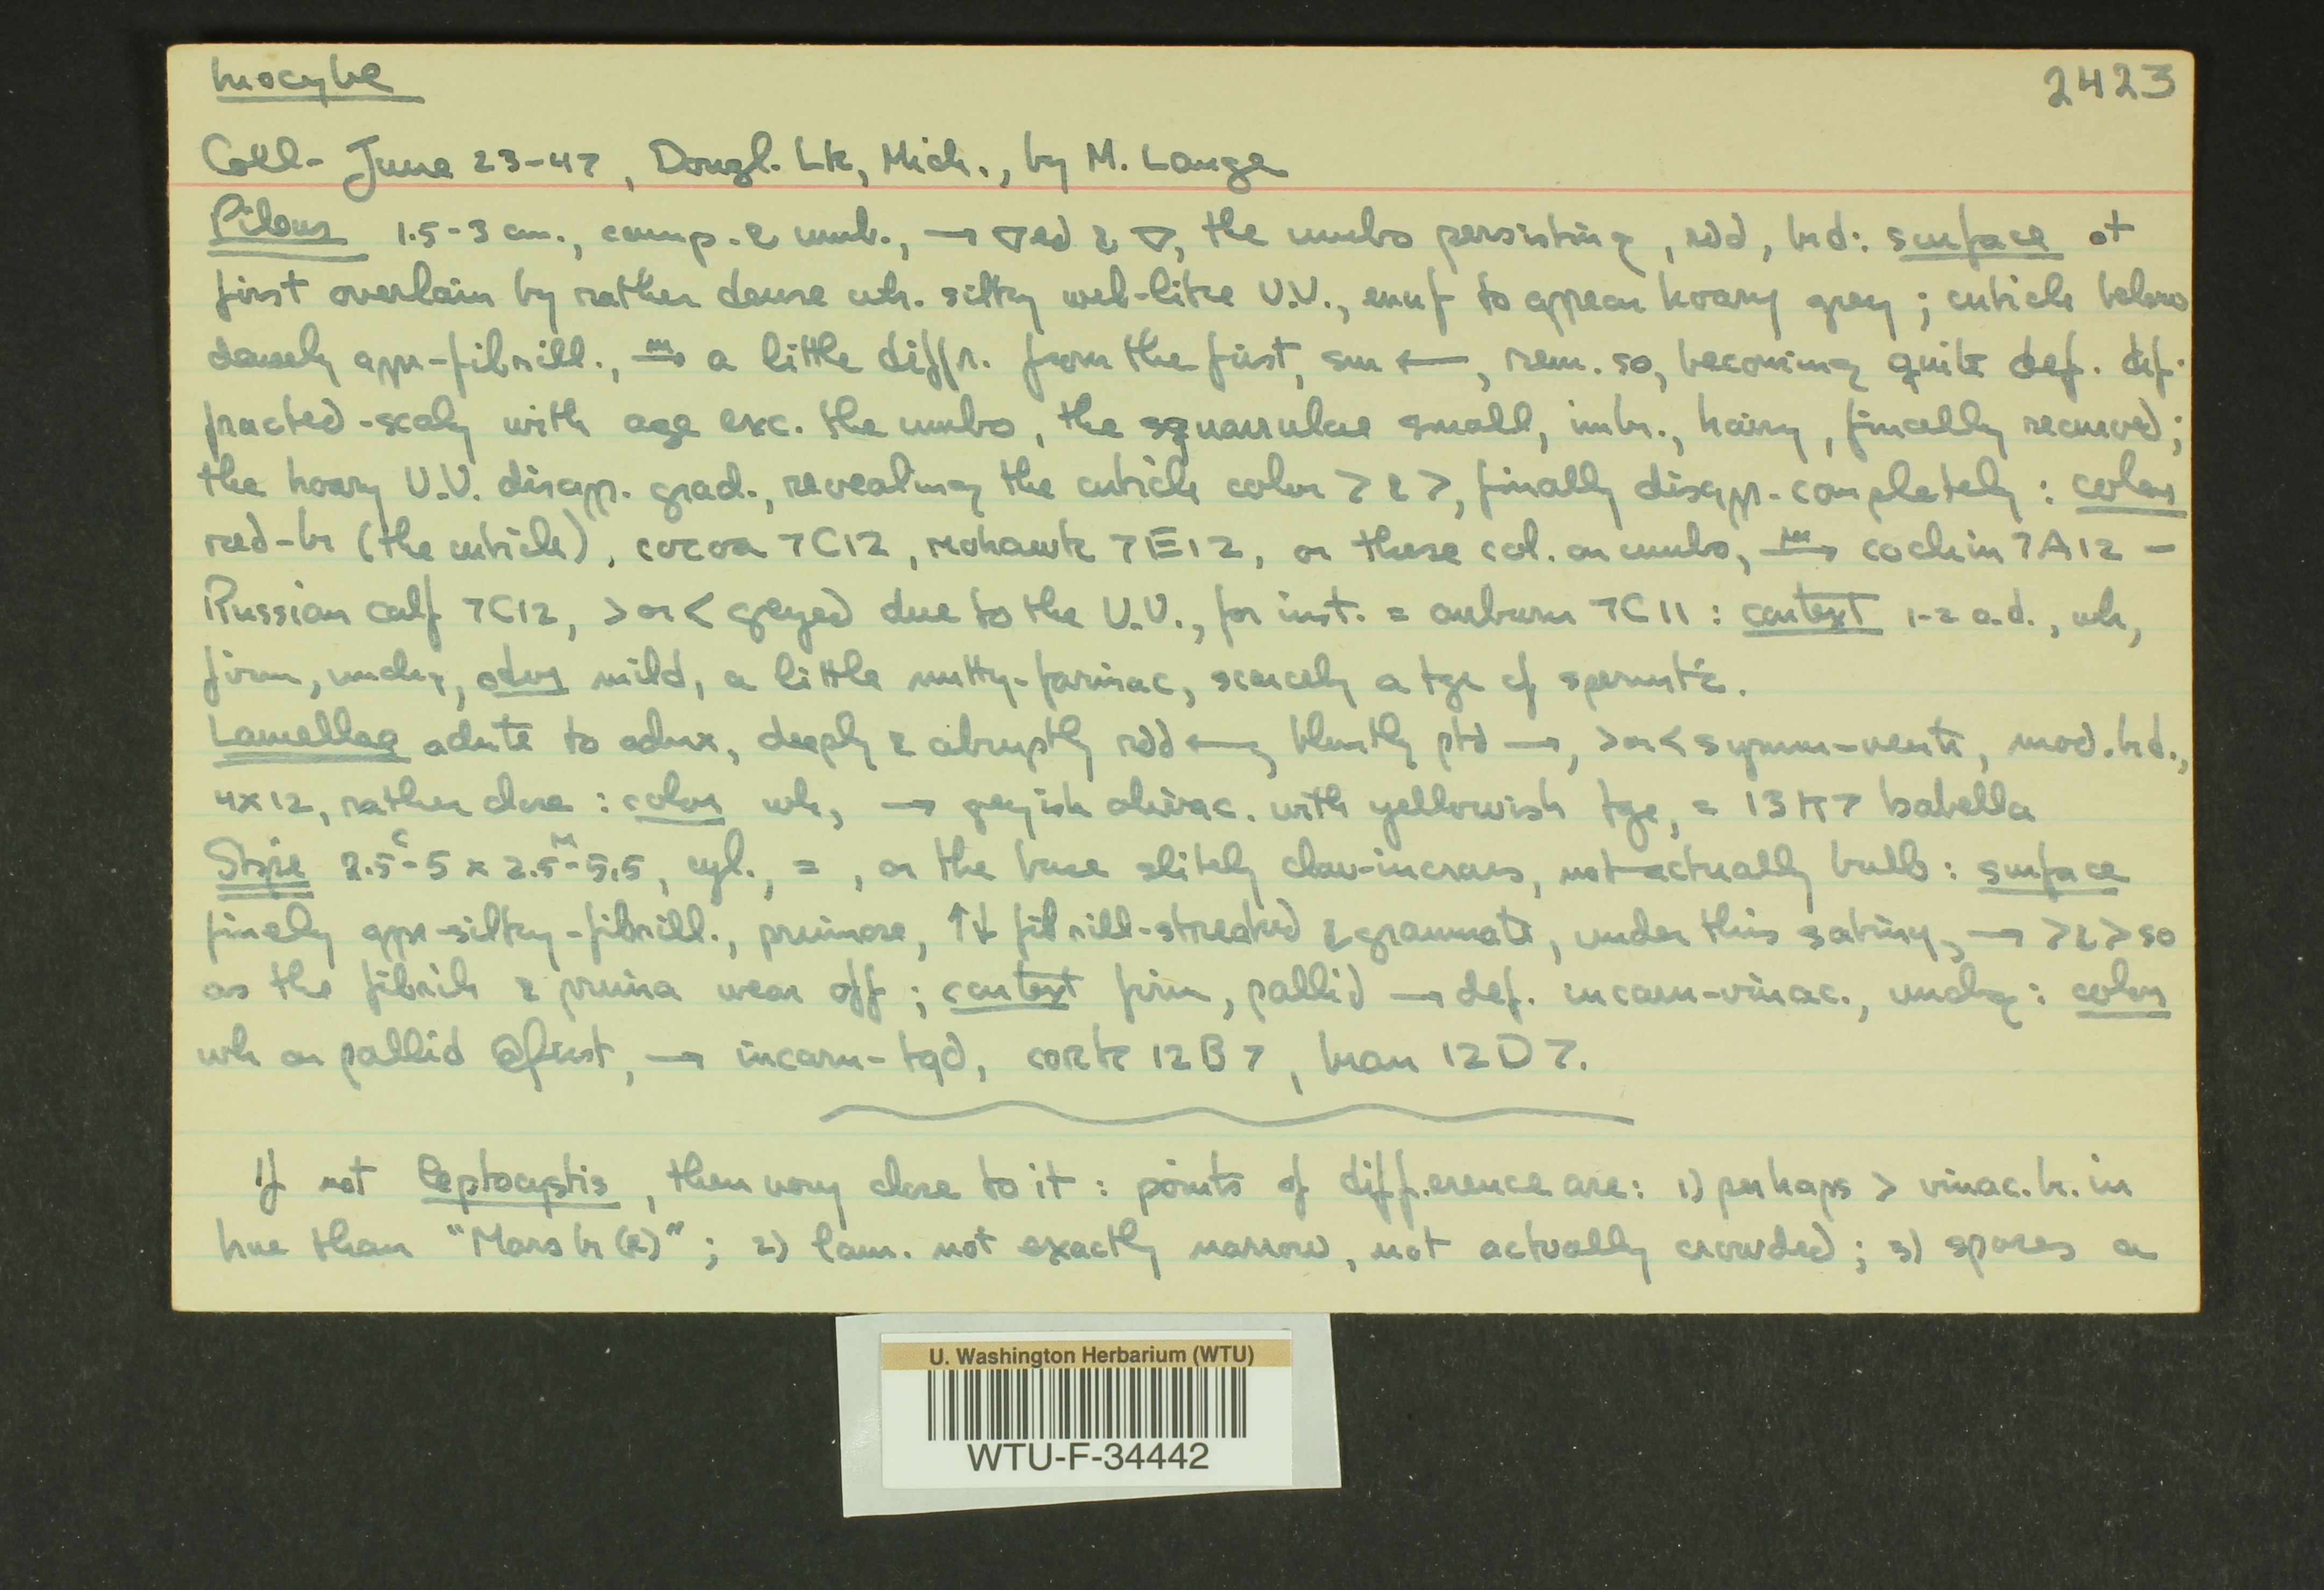 Inocybe 2423
Coll- June 23-47, Dougl. Lk, Mich., by M. Lange
Pileus 1.5-3 cm., camp. & umb., → ▽ed & ▽, the umbo persisting, rdd, brd: surface at
first overlain by rather dense wh. silky web-like U.V., enuf to appear hoary grey; cuticle below
densely appr-fibrill., → a little diffr. from the first, sm ←, rem. so, becoming quite def. dif-
fracted-scaly with age exc. the umbo, the squarrulae small, imbr., hairy, finally recurved;
the hoary U.V. disapp. grad., revealing the cuticle color > & >, finally disapp. completely: color
red-br (the cuticle), cocoa 7C12, mohawk 7E12, or these col. on umbo, → cochin 7A12 -
Russian calf 7C12, > or < greyed due to the U.V., for inst. = auburn 7C11: context 1-2 a.d., wh,
firm, undg, odor mild, a little nutty-farinac, scarcely a tge of spermtc.
Lamellae adnte to adnx, deeply & abruptly rdd ←, bluntly ptd →, > or < symm-ventr, mod. brd.,
4x12, rather close: color wh, → greyish olivac. with yellowish tge, = 13K7 Isabella
Stipe 2.5-5 c x 2.5-5.5 m, cyl., =, or the base slitely clav-incras, not actually bulb: surface
finely appr-silky-fibrill., pruinose, ↑↓ fibrill-streaked & grammate, under this satiny, → > & > so
as the fibrils & pruina wear off; context firm, pallid → def. incarn-vinac., undg: color
wh or pallid @ first, → incarn-tgd, cork 12B7, bran 12D7.
If not leptocystis, then very close to it: points of difference are: 1) perhaps > vinac. br. in
hue than "Mars br (R)"; 2) lam. not exactly narrow, not actually crowded; 3) spores a
U. Washington Herbarium (WTU)
WTU-F-34442